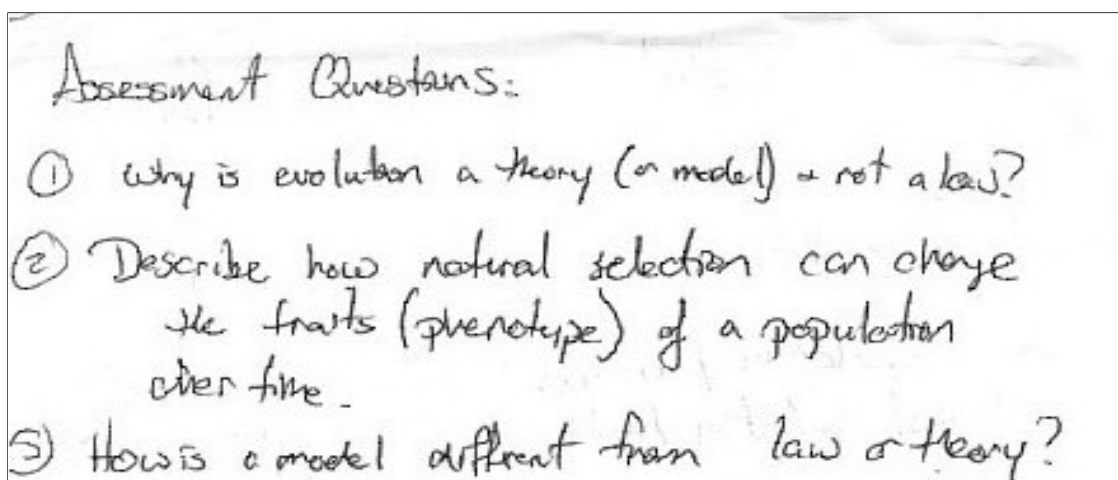 Assessment Questions:
① Why is evolution a theory (or model) + not a law?
② Describe how natural selection can change
the traits (phenotype) of a population
over time.
③ How is a model different from law or theory?